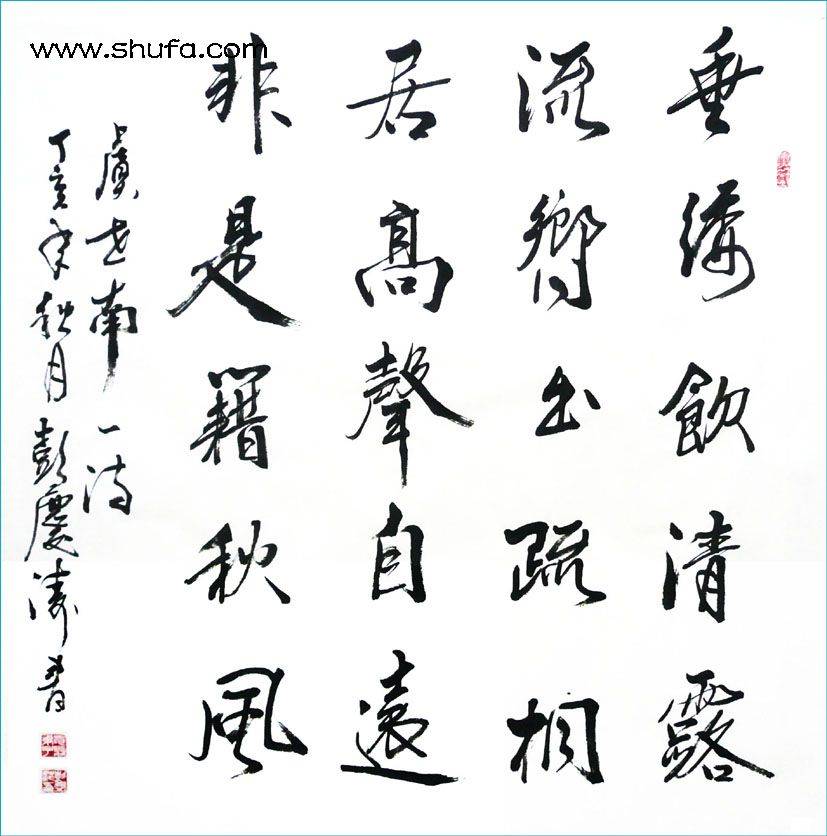 www.shufa.com
垂緌飲清露
流嚮出疏桐
居高聲自遠
非是籍秋風
虞世南一詩
丁亥年秋月彭慶濤書